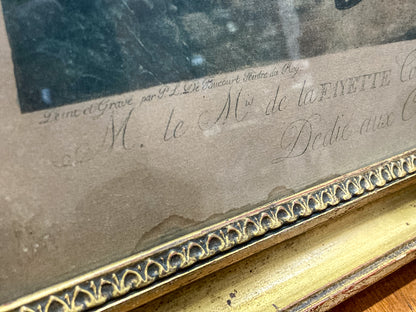 Peint et Gravé par P. L. De Bucourt Peintre du Roy
M. le M.is de la FAYETTE C
Dedié aux